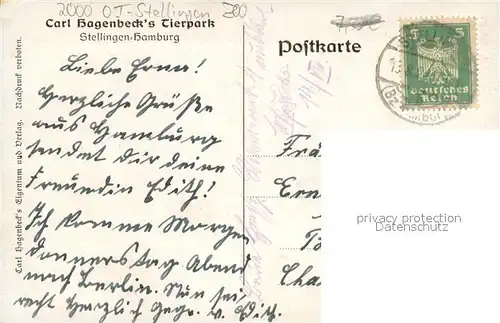 2000 OT-Stellingen Zoo
Carl Hagenbeck's Tierpark
Stellingen-Hamburg
Postkarte
Liebe Erna!
Herzliche Grüße
aus Hamburg
sendet dir deine
Freundin Edith!
Ich komme Morgen
Donnerstag Abend
nach Berlin. Nun sei
recht Herzlich Gegr. v. Edith.
Carl Hagenbeck's Eigentum und Verlag. Nachdruck verboten.
5 5
Deutsches
Reich
Frä
Ern
Cha
privacy protection
Datenschutz